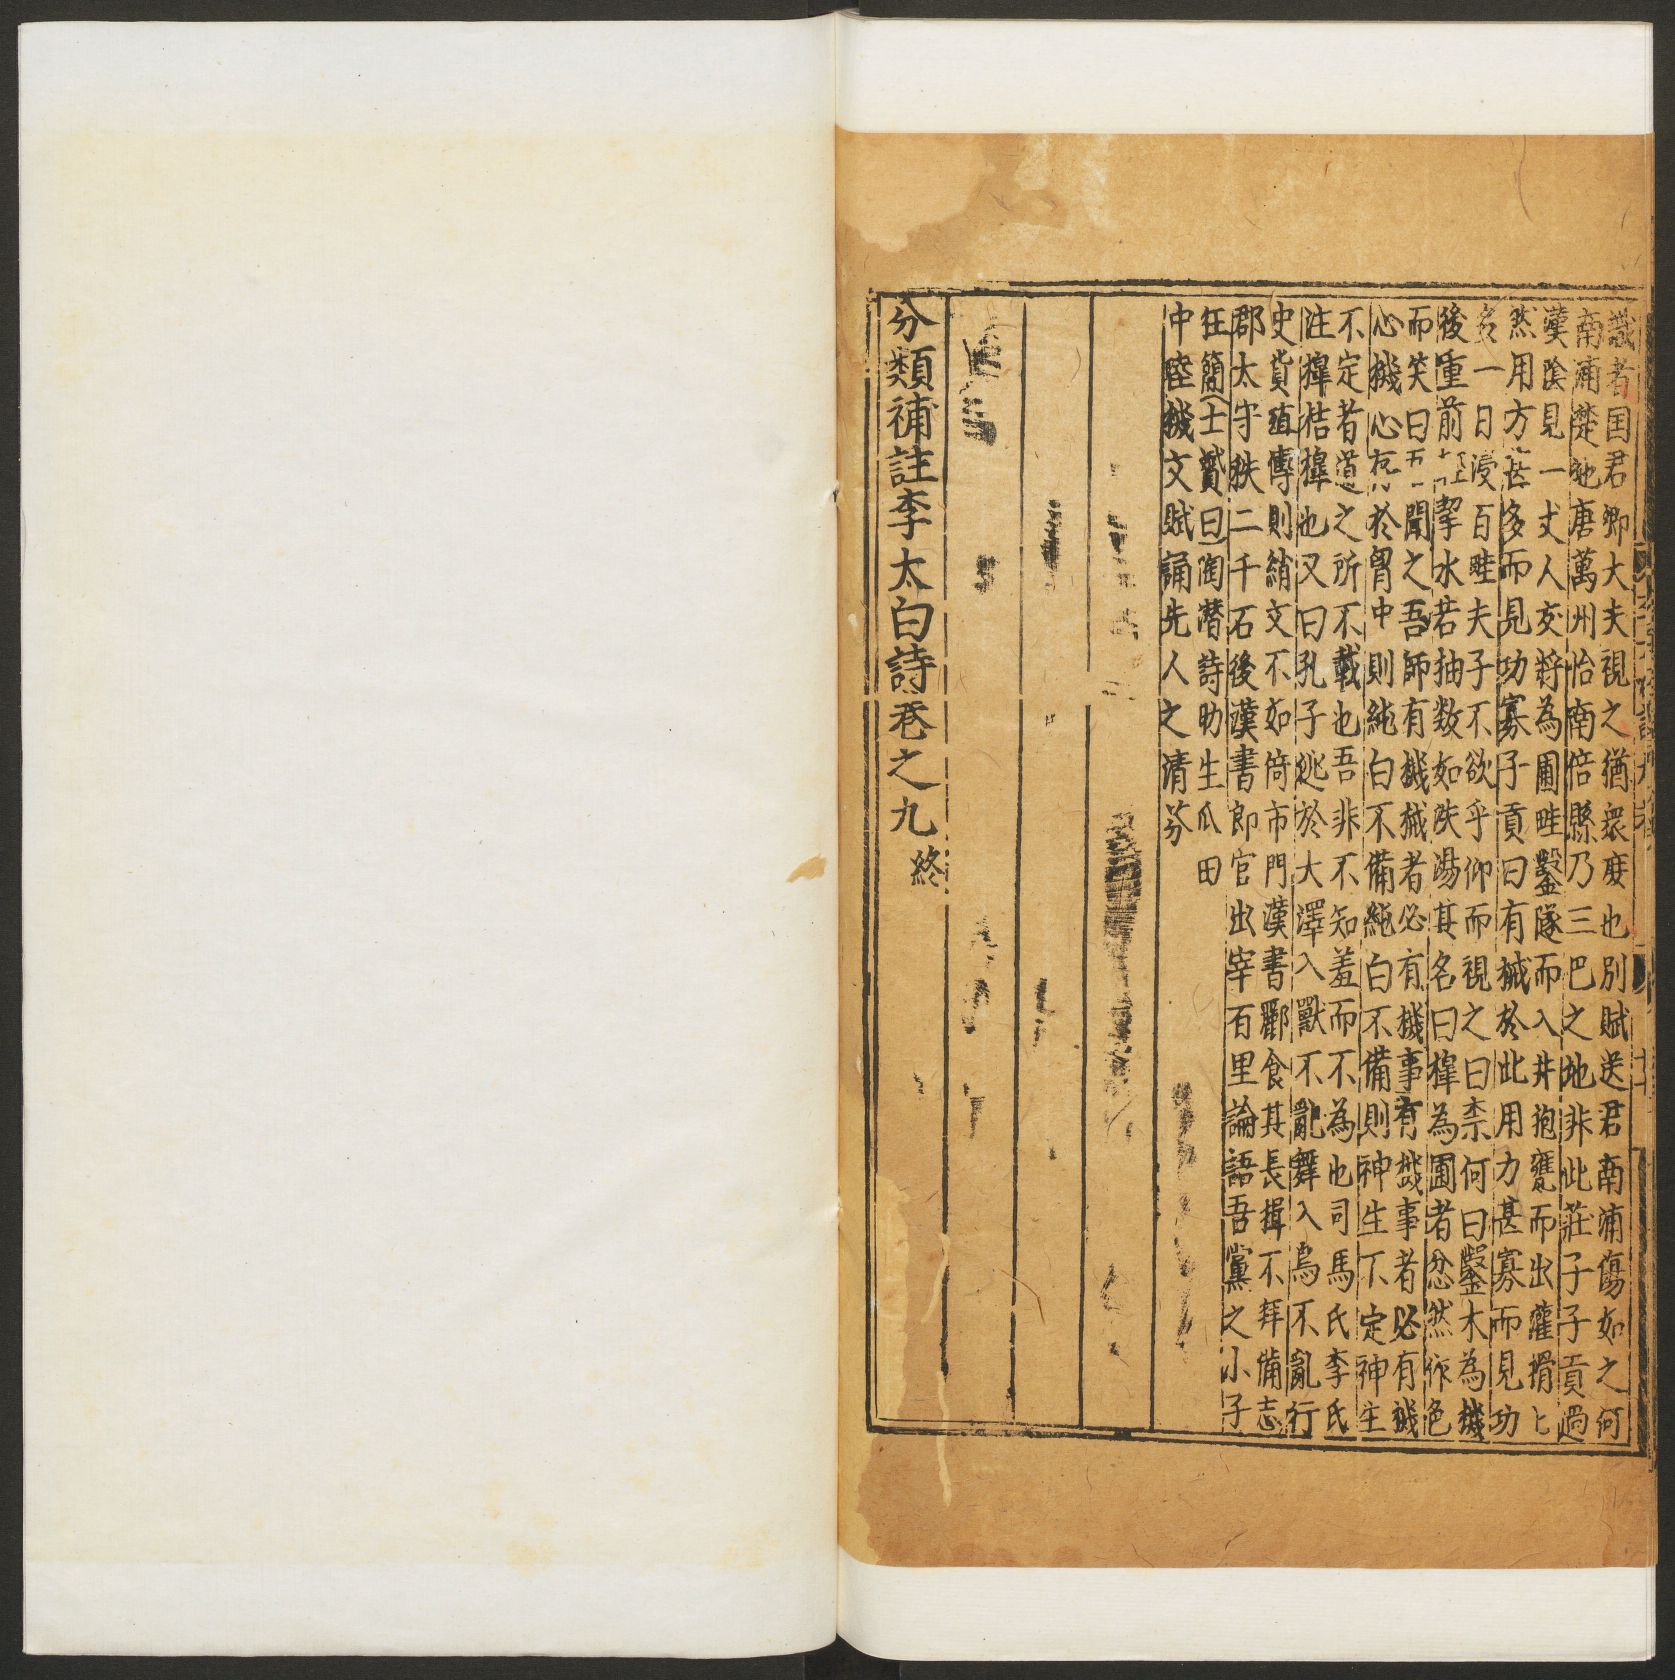 識者国君卿大夫視之猶衆庶也別賦送君南浦傷如之何
南浦楚地唐萬州怡南倍縣乃三巴之地非此莊子子貢過
漢陰見一丈人交將為圃畦鑿隧而入井抱甕而出灌搰匕
然用方甚多而見功寡子貢曰有械於此用力甚寡而見功
多一日浸百畦夫子不欲乎仰而視之曰柰何曰鑿木為機
後重前輕挈水若抽数如泆湯其名曰槔為圃者忿然作色
而笑曰吾聞之吾師有機械者必有機事有機事者必有機
心機心存於胷中則純白不備純白不備則神生不定神生
不定者道之所不載也吾非不知羞而不為也司馬氏李氏
注槔桔槔也又曰孔子逃於大澤入獸不亂羣入鳥不亂行
史貨殖傳則綃文不如倚市門漢書酈食其長揖不拜備志
郡太守秩二千石後漢書郎官出宰百里論語吾黨之小子
狂簡士贇曰陶潛詩助生瓜田
中陸機文賦誦先人之清芬
分類補註李太白詩卷之九 終